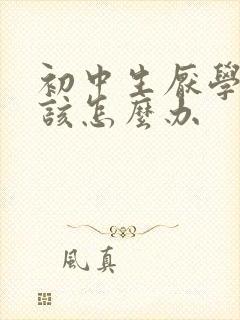 初中生厭學
該怎麼办
風真